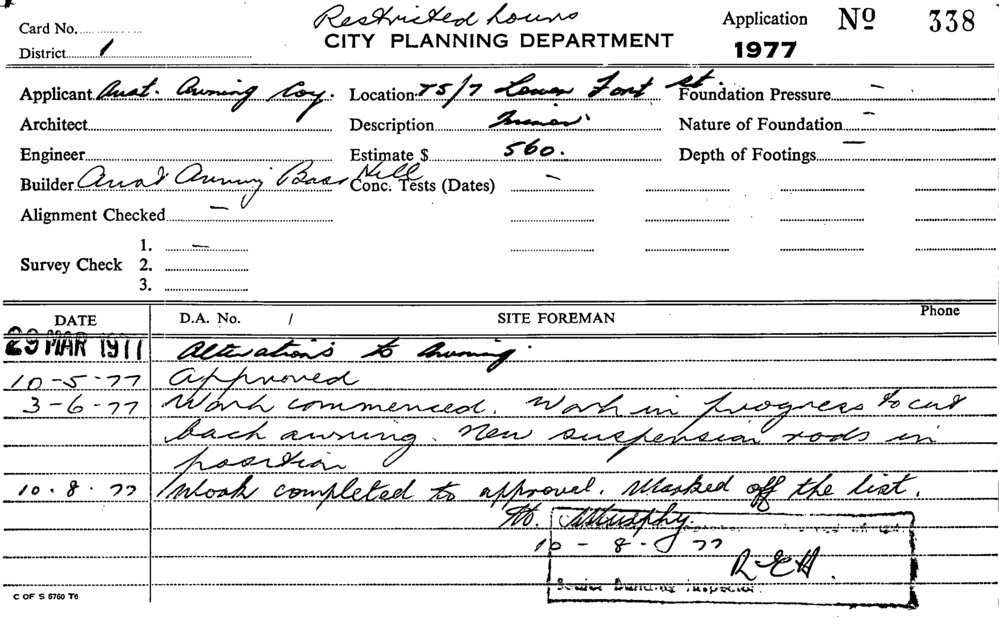 Restricted hours
Card No.
CITY PLANNING DEPARTMENT
Application No 338
1977
District 1
Applicant Aust. Awning Coy. Location 75/7 Lower Fort St. Foundation Pressure –
Architect Description Minor Nature of Foundation –
Engineer Estimate $ 560. Depth of Footings –
Builder Aust Awning Bass Hill Conc. Tests (Dates) –
Alignment Checked –
1. –
Survey Check 2.
3.
DATE D.A. No. / SITE FOREMAN Phone
29 MAR 1977 Alterations to Awning.
10-5-77 Approved
3-6-77 Work commenced. Work in progress to cut
back awning. New suspension rods in
position
10.8.77 Work completed to approval. Marked off the list.
Murphy.
10-8-77
R-EH.
Senior Building Inspector.
C OF S 6760 T6